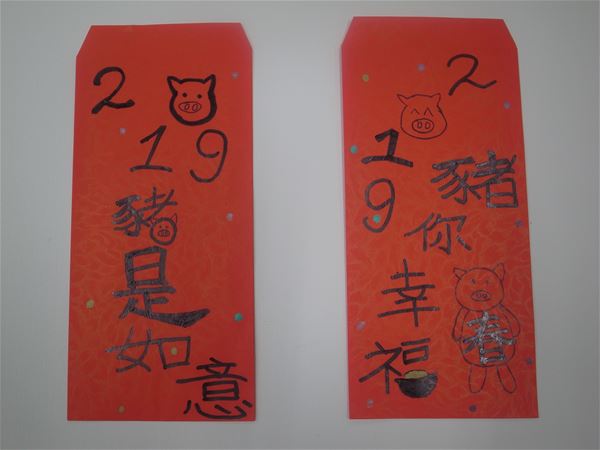 2
19
豬是如意
2
19
豬你幸福
春